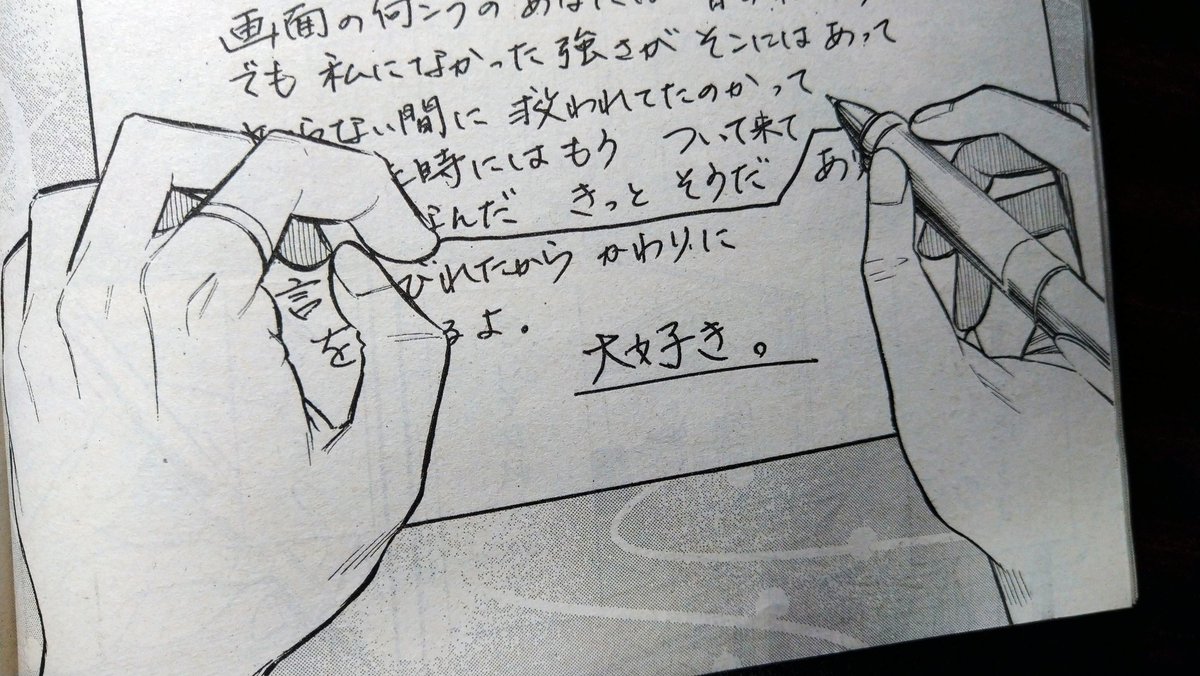 画面の向こうのあなたは昔の
でも 私になかった強さが そこにはあって
らない間に 救われてたのかって
時にはもう ついて来て
なんだ きっと そうだ あり
びれたから かわりに
言を るよ。
大好き。